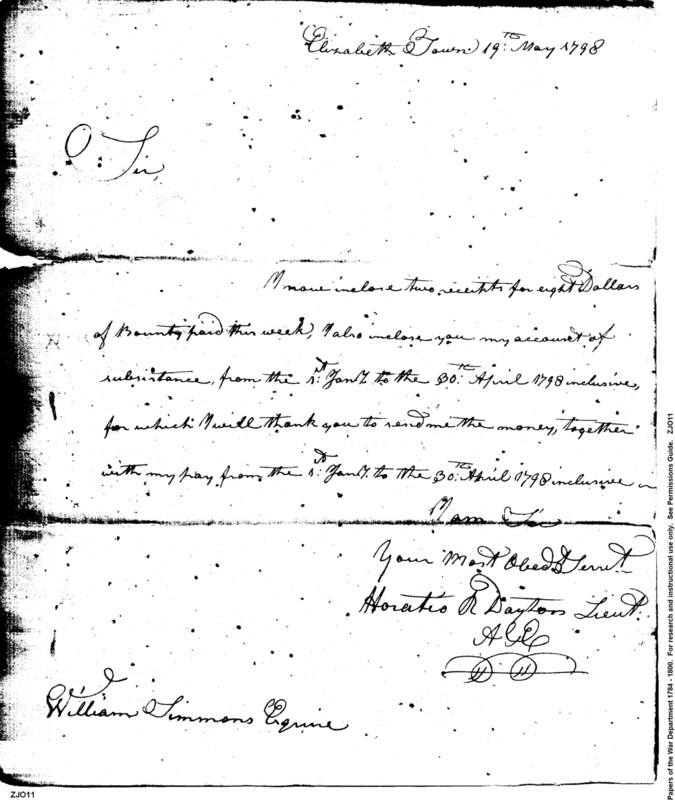 Elizabeth Town 19th: May 1798
Sir,
I now inclose two receipts for eight Dollars
of Bounty paid this week, I also inclose you my account of
subsistance, from the 1st: Jany. to the 30th: April 1798 inclusive,
for which I will thank you to send me the money, together
with my pay from the 1st: Jany. to the 30th: April 1798 inclusive
I am Sir
Your Most Obedt Servt.
Horatio R Dayton Lieut.
William Simmons Esquire
ZJO11
Papers of the War Department 1784 - 1800. For research and instructional use only. See Permissions Guide. ZJO11